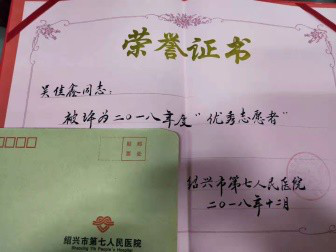 荣誉证书
吴佳鑫同志:
被评为二〇一八年度“优秀志愿者”
绍兴市第七人民医院
二〇一八年十二月
绍兴市第七人民医院